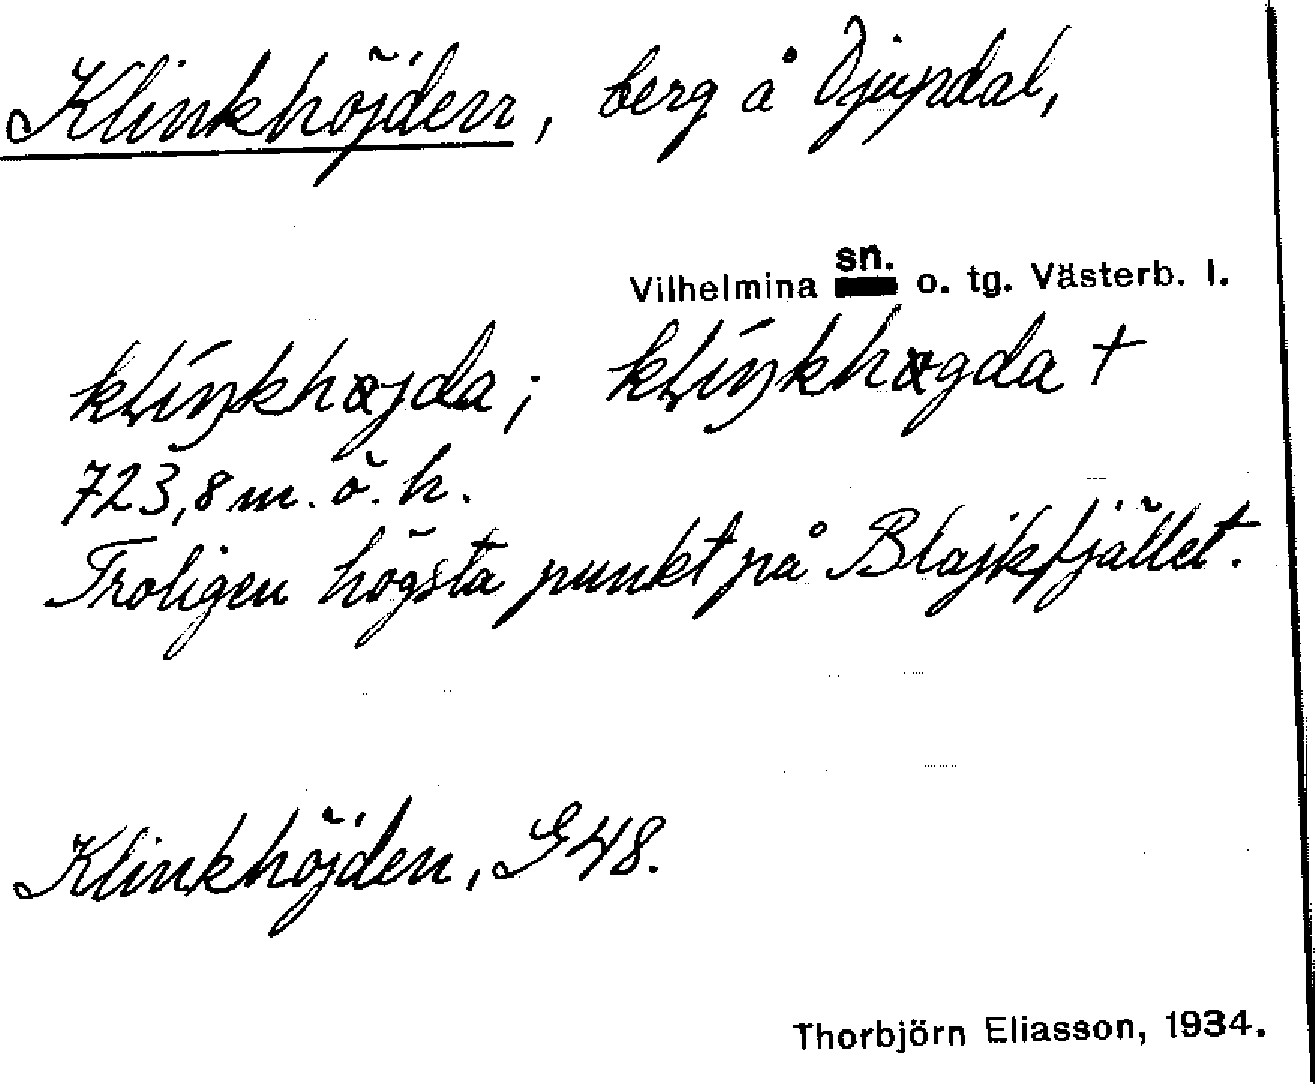 Klinkhöjden, berg å Djupdal,
Vilhelmina sn. o. tg. Västerb. l.
kḷíŋkhøjda; kḷíŋkhøgda +
723,8 m. ö. h.
Troligen högsta punkt på Blajkfjället.
Klinkhöjden, G48.
Thorbjörn Eliasson, 1934.